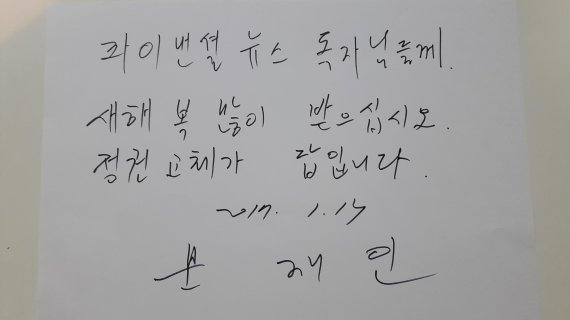 파이낸셜 뉴스 독자님들께.
새해 복 많이 받으십시오.
정권교체가 답입니다.
2017. 1. 15
문 재 인